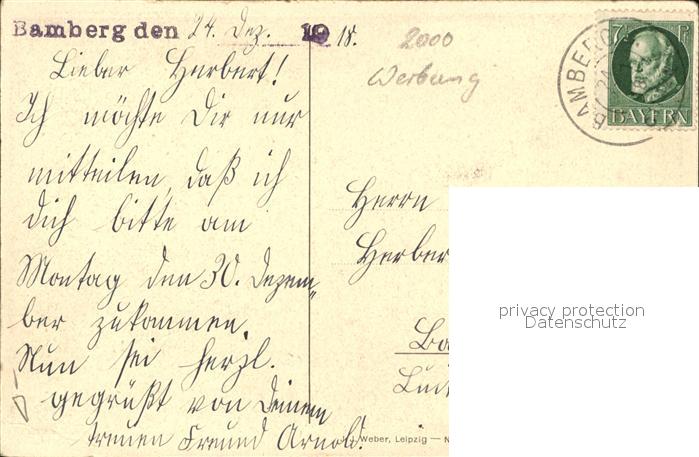 Bamberg den 24. Dez. 1918.
Lieber Herbert!
Ich möchte Dir nur
mitteilen, daß ich
dich bitte am
Montag den 30. Dezem„
ber zukommen.
Nun sei herzl.
gegrüßt von Deinem
treuen Freund Arnold.
2000
Werbung
BAMBERG
7½ Pf
BAYERN
Herrn
Herber
Ba
Luit
privacy protection
Datenschutz
Weber, Leipzig — N